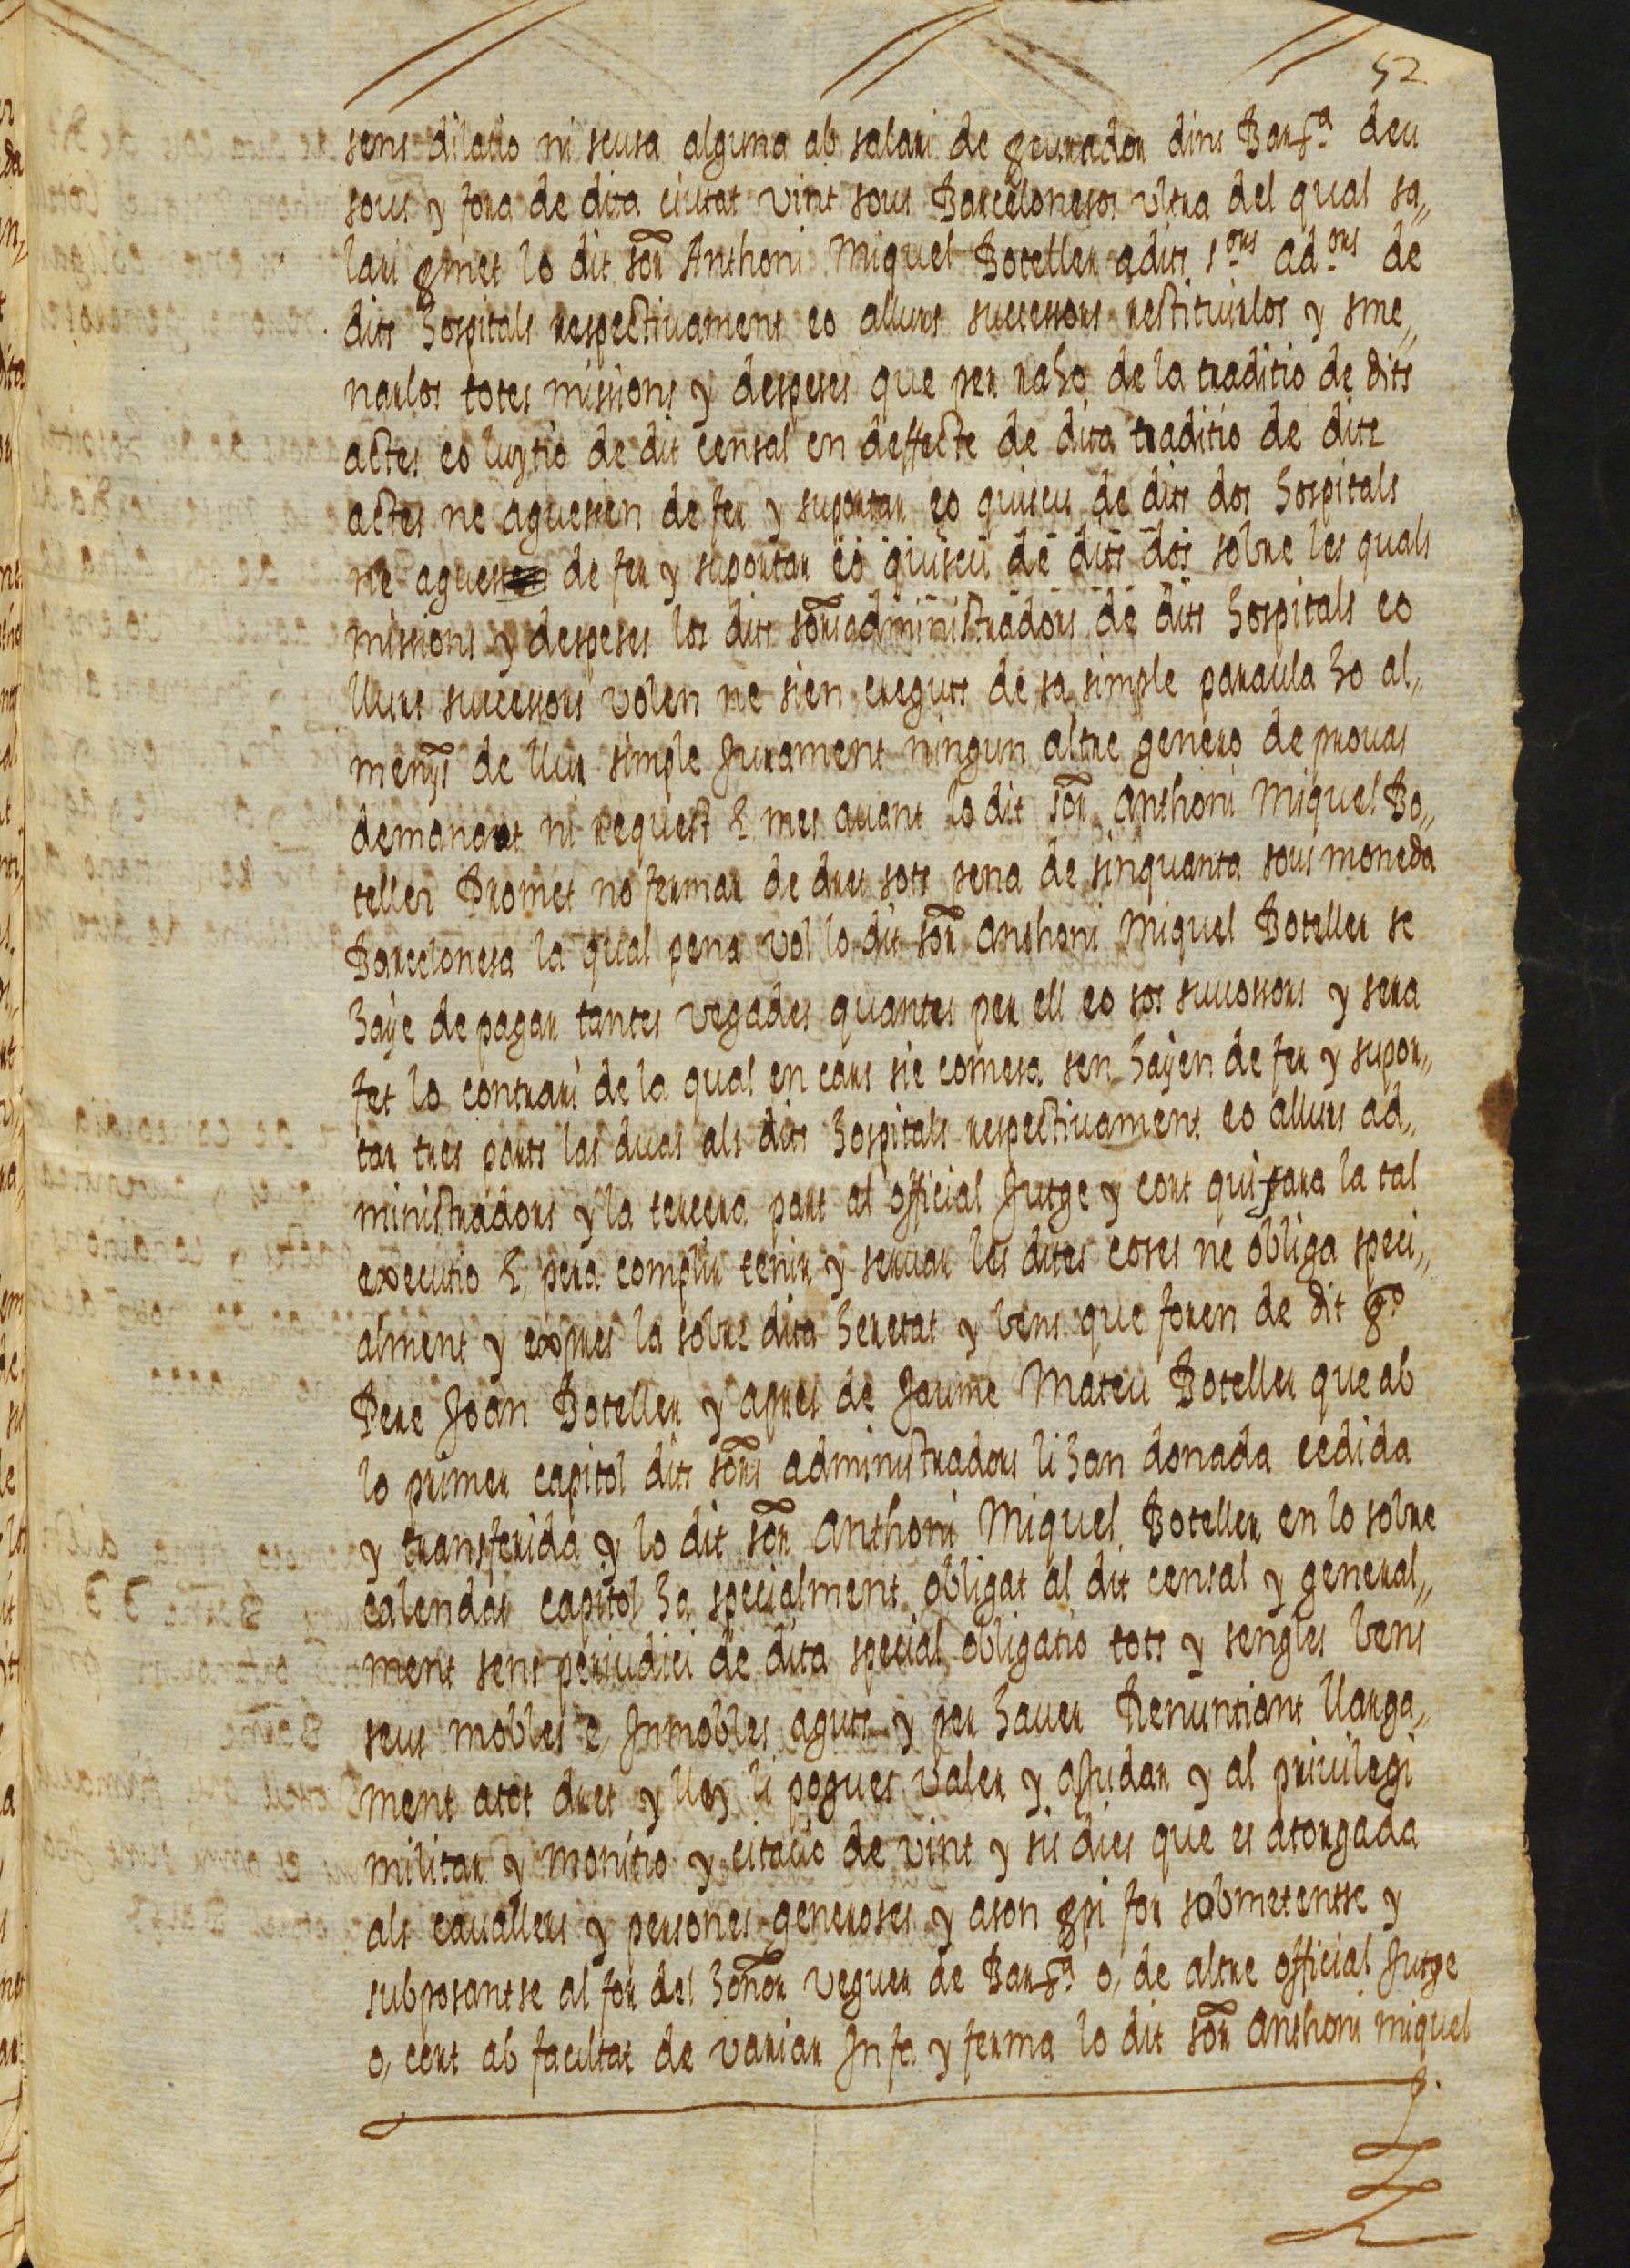 52
sens dilatio ni scusa alguna ab salari de ꝓcurador dins Barᶜᵃ deu
sous y fora de dita ciutat vint sous Barcelonesos ultra del qual sa„
lari ꝓmet lo dit sor̃ Anthoni Miquel Boteller a dits s.ors ad.ors de
dits hospitals respectivament eo allurs successors restituirlos y sme„
narlos totes missions y despeses que per raho de la traditio de dits
actes eo luytio de dit censal en deffecte de dita traditio de dits
actes ne aguessen de fer y suportar eo quiscu de dits dos hospitals
ne aguessen de fer y suportar eo quiscu de dits dos sobre les quals
missions y despeses los dits sors̃ administradors de dits hospitals eo
llurs successors volen ne sien creguts de sa simple paraula ho al„
menys de llur simple Jurament ningun altre genero de provas
demanat ni request E mes avant lo dit sor̃ Anthoni Miquel Bo„
teller Promet no fermar de dret sots pena de sinquanta sous moneda
Barcelonesa la qual pena vol lo dit sor̃ Anthoni Miquel Boteller se
haye de pagar tantes vegades quantes per ell eo sos succossors y sera
fet lo contrari de la qual en cars sie comesa sen hayen de fer y supor„
tar tres parts las duas als dits hospitals respectivament eo allurs ad„
ministradors y la tercera part al official Jutge y cort qui fara la tal
executio E, pera complir tenir y servar les dites coses ne obliga speci„
alment y expres la sobre dita heretat y bens que foren de dit qº
Pere Joan Boteller y apres de Jaume Mateu Boteller que ab
lo primer capitol dits sors̃ administradors li han donada cedida
y transferida y lo dit sor̃ Anthoni Miquel Boteller en lo sobre
calendat capitol ha specialment obligat al dit censal y general„
ment sens perjudici de dita special obligatio tots y sengles bens
seus mobles e, Inmobles aguts y per haver Renuntiant llarga„
ment atot dret y lley li pogues valer y ajudar y al privilegi
militar y monitio y citacio de vint y sis dies que es atorgada
als cavallers y persones generoses y ason ꝓpi for sobmetentse y
subposantse al for del honor̃ veguer de Barᶜᵃ o, de altre official Jutge
o, cort ab facultat de variar Infa y ferma lo dit sor̃ Anthoni miquel